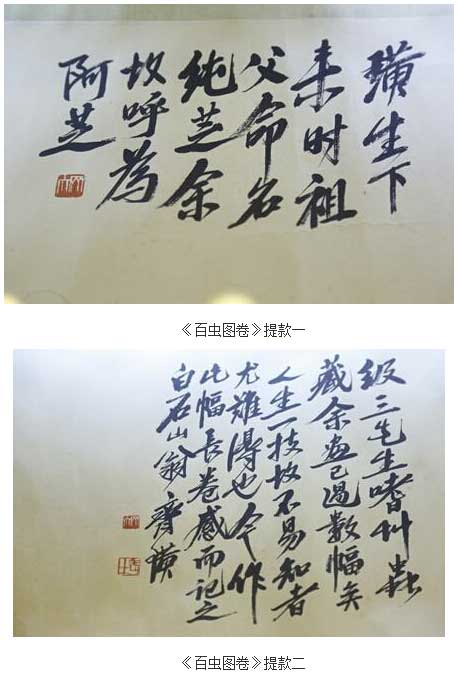 璜生下
来时祖
父命名
純芝余
故呼為
阿芝
《百虫图卷》提款一
级三先生嗜艸蟲
藏余画已過数幅矣
人生一技故不易知者
尤難得也今作
此幅長卷感而記之
白石山翁齊璜
《百虫图卷》提款二